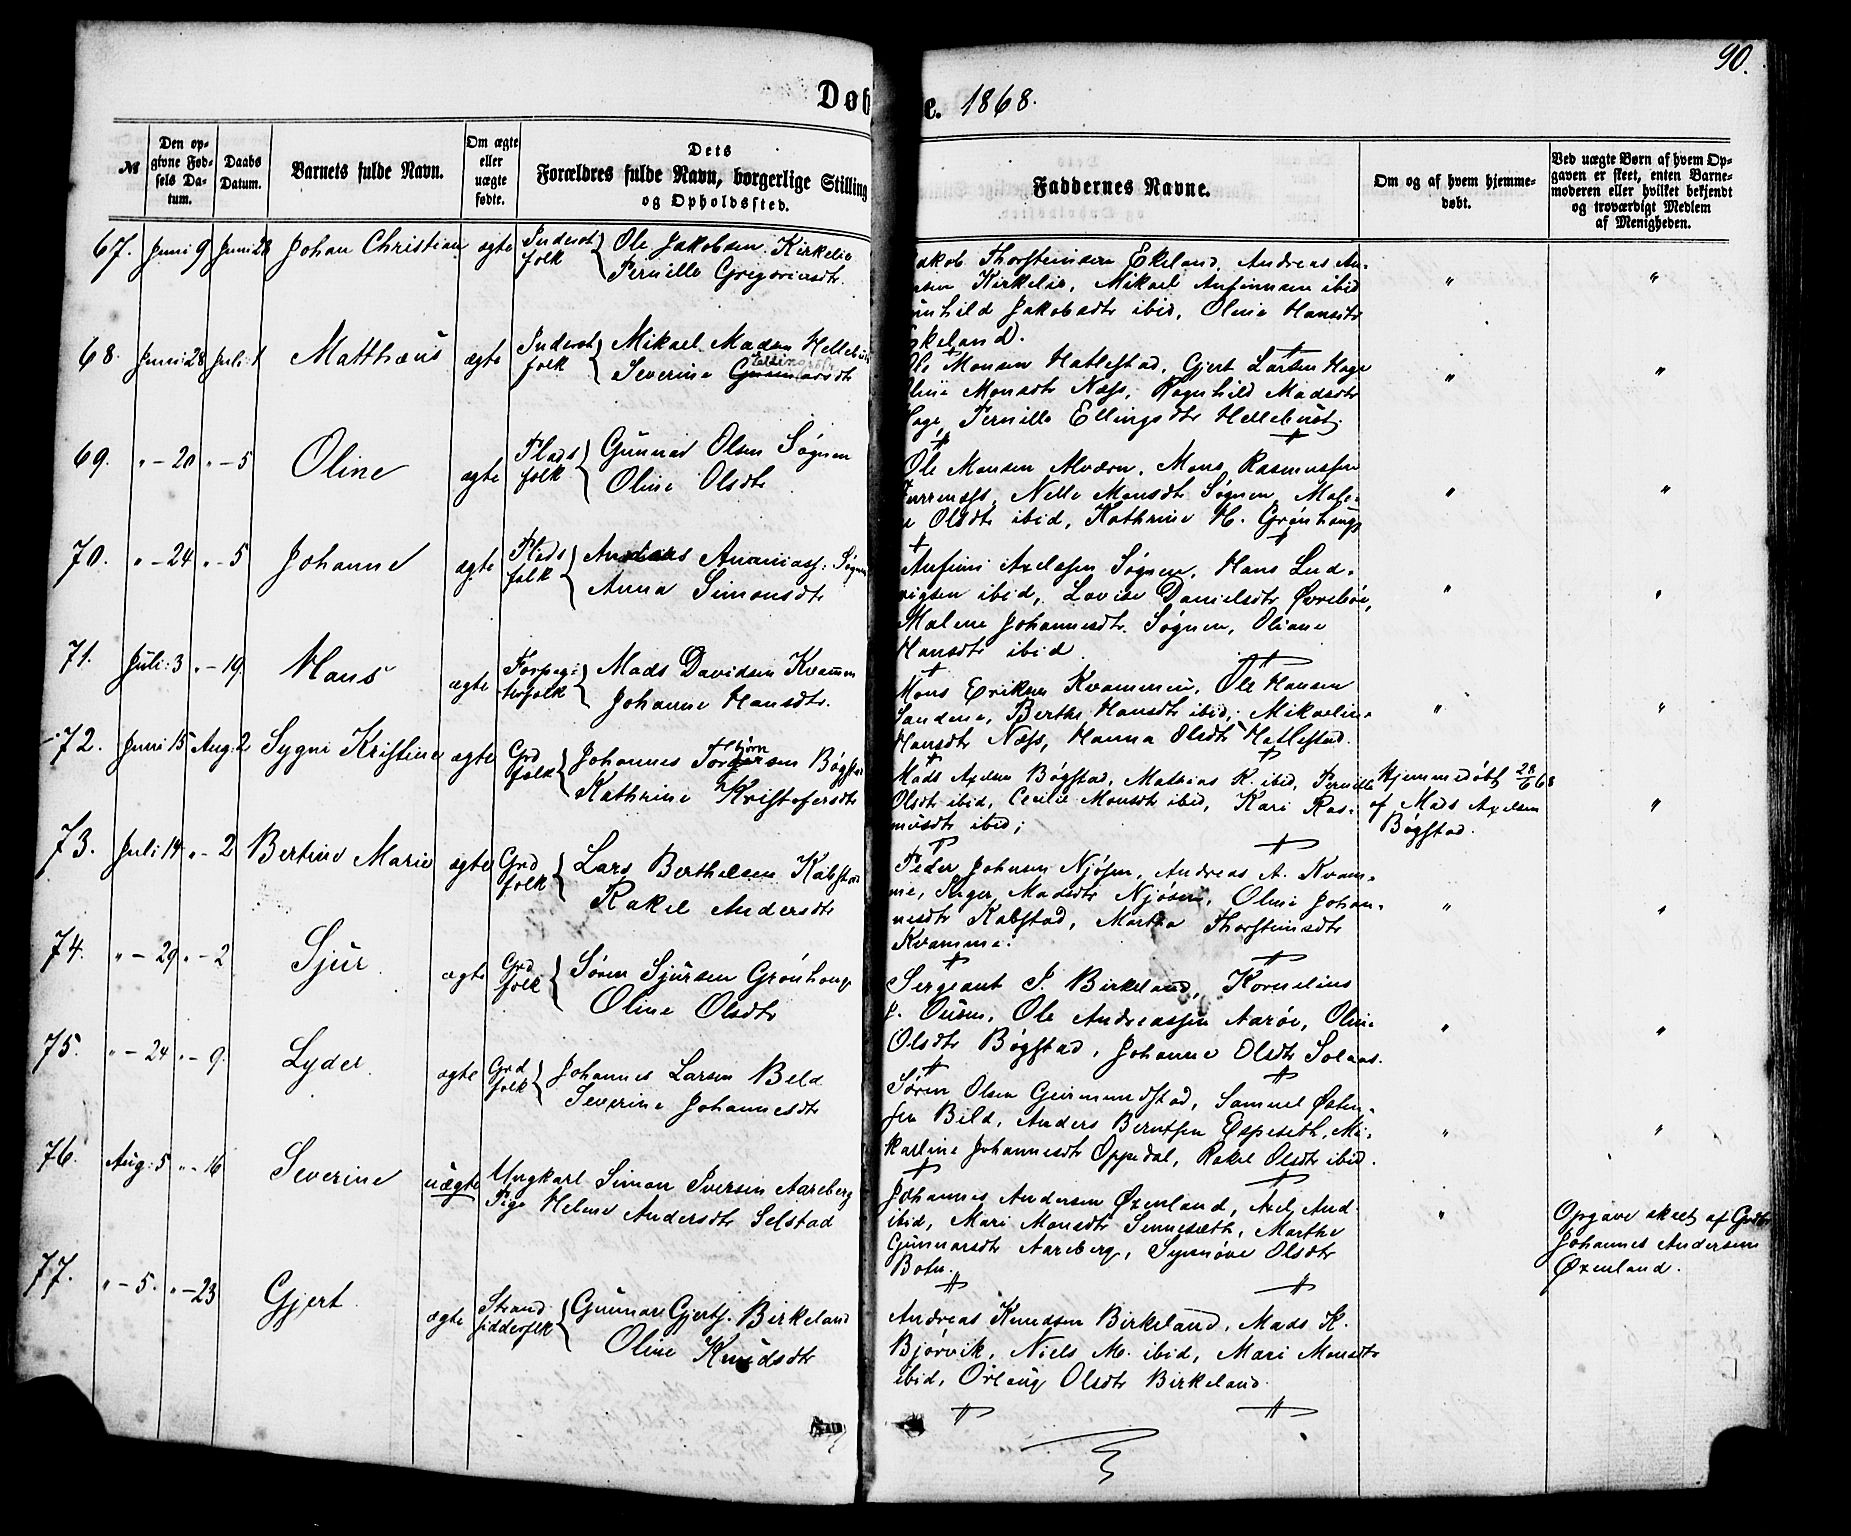 90.
Døb
e. 1868.
№
Den op-
givne Fød-
sels Da-
tum.
Daabs
Datum.
Barnets fulde Navn.
Om ægte
eller
uægte
fødte.
Dets
Forældres fulde Navn, borgerlige Stilling
og Opholdssted.
Faddernes Navne.
Om og af hvem hjemme-
døbt.
Ved uægte Børn af hvem Op-
gaven er skeet, enten Barne-
moderen eller hvilket bekjendt
og troværdigt Medlem
af Menigheden.
67. Juni 9 Juni 28 Johan Christian ægte Inderst folk Ole Jakobsen Kirkelie
Pernille Gregoriusdtr.
akob Thorsteinsen Ekeland, Andreas An-
sen Kirkelie, Mikael Anfinnsen ibid
unhild Jakobsdtr ibid, Oline Hansdtr
keland.
" "
68. Juni 28 Juli 1 Matthæus ægte Inderst folk Mikael Madsen Hellebust
Ellingsdtr
Severine Gunnarsdtr
Ole Monsen Hatlestad, Gjert Larsen Hage
Oline Monsdtr Næss, Ragnhild Madsdtr
Hage, Pernille Ellingsdtr Hellebust.
" "
69. " - 20 " - 5 Oline ægte Plads folk Gunnar Olsen Søgnen
Oline Olsdtr
Ole Monsen Alværn, Mons Rasmussen
Furrenæss, Nelle Monsdtr Søgnen, Male-
ne Olsdtr ibid, Kathrine H. Grønhaug
" "
70. " - 24 " - 5 Johanne ægte Plads folk Andreas Ananiass. Søgnen
Anna Simonsdtr
Anfinn Axelsen Søgnen, Hans Lud-
vigsen ibid, Lovise Danielsdtr Øvrebøe,
Malene Johannesdtr. Søgnen, Oliane
Hansdtr ibid
" "
71. Juli: 3 " - 19. Hans ægte Forpag- terfolk Mads Davidsen Kvammen
Johanne Hansdtr.
Mons Eriksen Kvammen, Ole Hansen
Sandene, Berthe Hansdtr ibid, Mikaeline
Hansdtr Næss, Hanna Olsdtr Hatlestad.
" "
72. Juni 15 Aug: 2 Sygni Kristine ægte Grd folk Johannes Torbjørnsen Bøgstad
Kathrine Kristofersdtr
Mads Axelsen Bøgstad, Mathias R. ibid, Pernille
Olsdtr ibid, Cecilie Monsdtr ibid, Kari Ras-
musdtr ibid;
Hjemmedøbt 28/6 68
af Mads Axelsen
Bøgstad.
"
73. Juli 14 " - 2 Bertine Marie ægte Grd folk Lars Berthelsen Kalstad
Rakel Andersdtr
Peder Johnsen Njøsen, Andreas A. Kvam-
me, Inger Madsdtr Njøsen, Oline Johan-
nesdtr Kalstad, Martha Thorsteinsdtr
Kvamme.
" "
74. " - 29 " - 2 Sjur ægte Grd folk Søren Sjursen Grønhaug
Oline Olsdtr
Sergeant S. Birkeland, Kornelius
J. Ousen, Ole Andreassen Aarøe, Oline
Olsdtr Bøgstad, Johanne Olsdtr Solaas.
" "
75. " - 24 " - 9. Lyder ægte Grd folk Johannes Larsen Beld
Severine Johannesdtr
Søren Olsen Geirmundstad, Samuel Østen-
sen Bild, Anders Berntsen Espeseth, Mi-
karline Johannesdtr Oppedal, Rakel Olsdtr ibid.
" "
76. Aug: 5 " - 16 Severine uægte Ungkarl Simon Iversen Aareberg
Pige Helene Andersdtr Selstad
Johannes Andersen Øxenland, Axel And.
ibid, Mari Monsdtr Sennesæth, Marthe
Gunnarsdtr Aareberg, Synnøve Olsdtr
Botn.
"
Opgave skeet af Grdbr
Johannes Andersen
Øxenland.
77. " - 5. " - 23 Gjert ægte Strand sidderfolk Gunnar Gjerts. Birkeland
Oline Knudsdtr
Andreas Knudsen Birkeland, Mads K.
Bjørvik, Niels M. ibid, Mari Monsdtr
ibid, Ørlaug Olsdtr Birkeland.